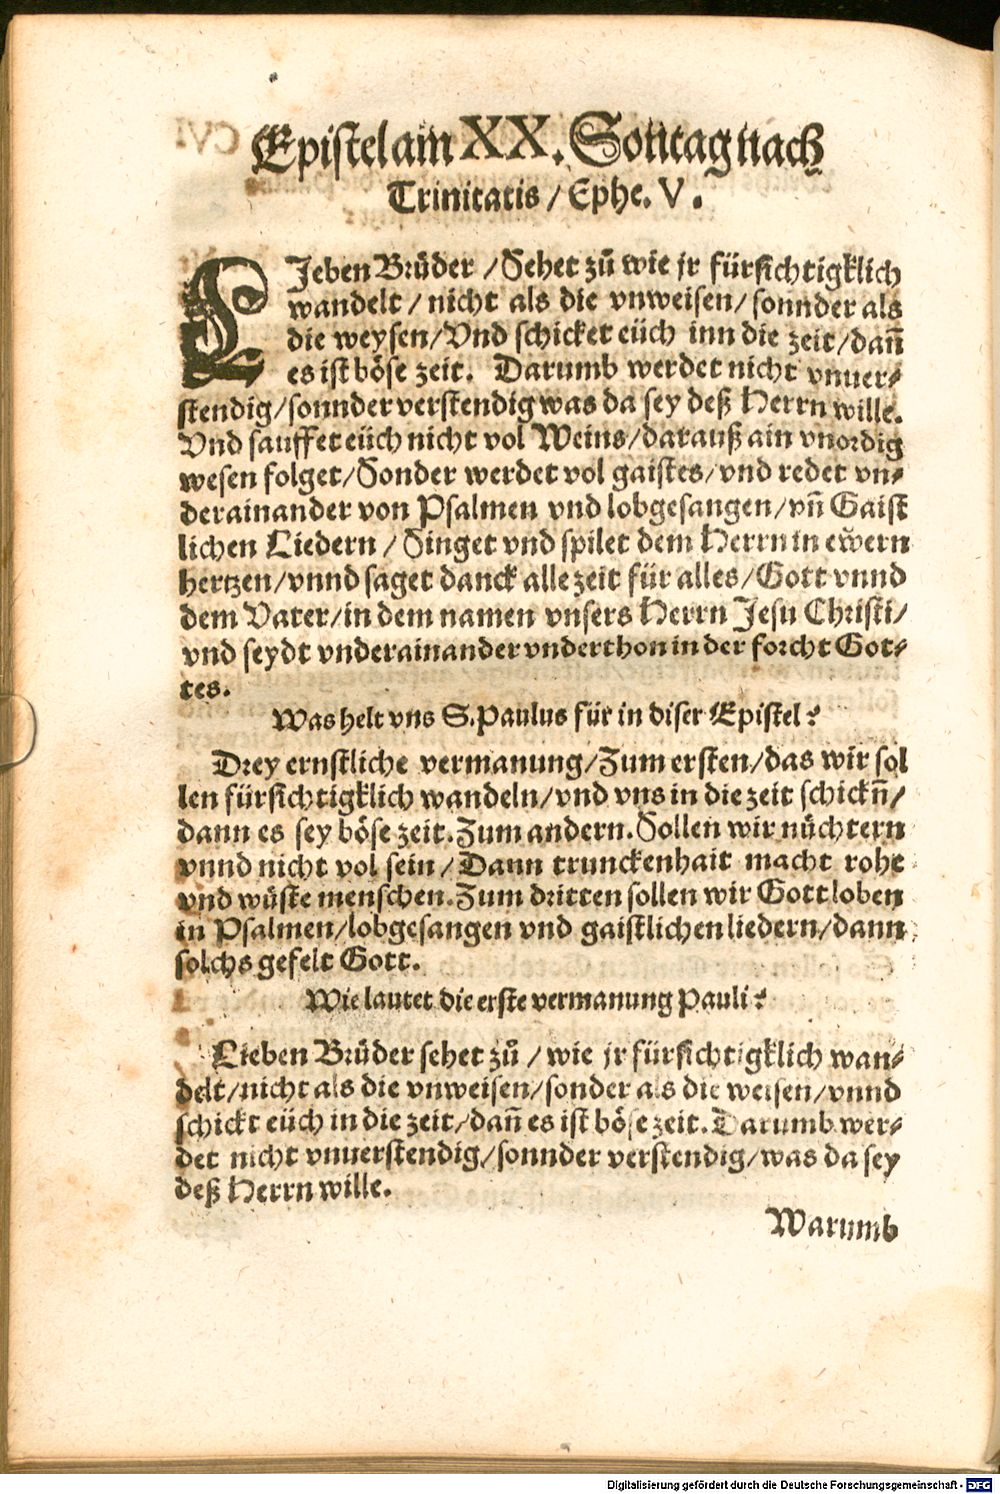 Epistel am XX. Sontag nach
Trinitatis / Ephe. V.
LIeben Brüder / Sehet zů wie jr fürsichtigklich
wandelt / nicht als die vnweisen / sonnder als
die weysen / Vnd schicket eüch inn die zeit / dañ
es ist böse zeit. Darumb werdet nicht vnuer⸗
stendig / sonnder verstendig was da sey deß Herrn wille.
Vnd sauffet eüch nicht vol Weins / darauß ain vnordig
wesen folget / Sonder werdet vol gaistes / vnd redet vn⸗
derainander von Psalmen vnd lobgesangen / vñ Gaist
lichen Liedern / Singet vnd spilet dem Herrn in ewern
hertzen / vnnd saget danck alle zeit für alles / Gott vnnd
dem Vater / in dem namen vnsers Herrn Jesu Christi /
vnd seydt vnderainander vnderthon in der forcht Got⸗
tes.
Was helt vns S. Paulus für in diser Epistel?
Drey ernstliche vermanung / Zum ersten / das wir sol
len fürsichtigklich wandeln / vnd vns in die zeit schickñ /
dann es sey böse zeit. Zum andern. Sollen wir nüchtern
vnnd nicht vol sein / Dann trunckenhait macht rohe
vnd wüste menschen. Zum dritten sollen wir Gott loben
in Psalmen / lobgesangen vnd gaistlichen liedern / dann
solchs gefelt Gott.
Wie lautet die erste vermanung Pauli?
Lieben Brüder sehet zů / wie jr fürsichtigklich wan⸗
delt / nicht als die vnweisen / sonder als die weisen / vnnd
schickt eüch in die zeit / dañ es ist böse zeit. Darumb wer⸗
det nicht vnuerstendig / sonnder verstendig / was da sey
deß Herrn wille.
Warumb
Digitalisierung gefördert durch die Deutsche Forschungsgemeinschaft - DFG